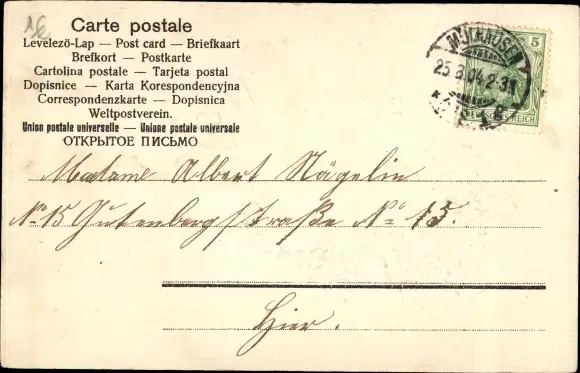 Carte postale
Levelezö-Lap — Post card — Briefkaart
Brefkort — Postkarte
Cartolina postale — Tarjeta postal
Dopisnice — Karta Korespondencyjna
Correspondenzkarte — Dopisnica
Weltpostverein.
Union postale universelle — Unione postale universale
ОТКРЫТОЕ ПИСЬМО
5
MÜLHAUSEN
DEUTSCHES REICH
Madame Albert Nägelin
No 15 Gutenbergstraße No 15.
Hier.